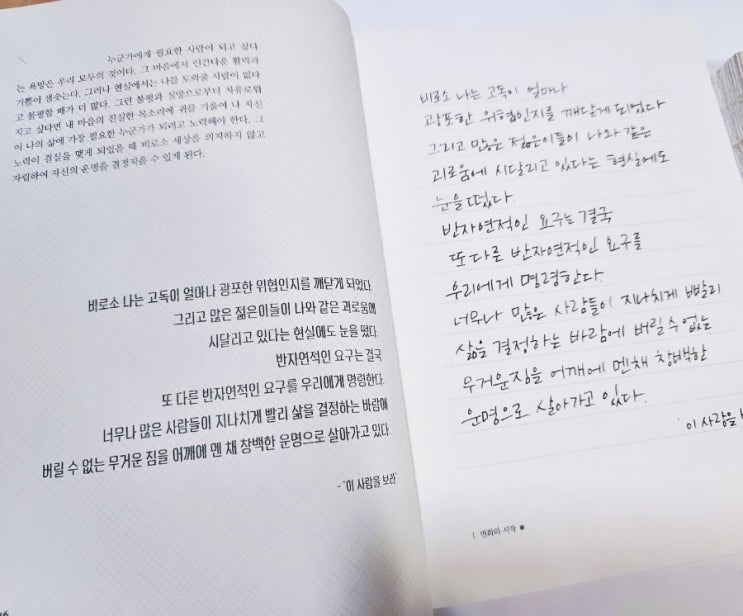 누군가에게 필요한 사람이 되고 싶다
는 욕망은 우리 모두의 것이다. 그 마음에서 인간다운 활력과
기쁨이 샘솟는다. 그러나 현실에서는 나를 도와줄 사람이 없다
고 불평할 때가 더 많다. 그런 불평과 실망으로부터 자유로워
지고 싶다면 내 마음의 진실한 목소리에 귀를 기울여 나 자신
이 나의 삶에 가장 필요한 누군가가 되려고 노력해야 한다. 그
노력이 결실을 맺게 되었을 때 비로소 세상을 의지하지 않고
자립하여 자신의 운명을 결정지을 수 있게 된다.
비로소 나는 고독이 얼마나 광포한 위험인지를 깨닫게 되었다.
그리고 많은 젊은이들이 나와 같은 괴로움에
시달리고 있다는 현실에도 눈을 떴다.
반자연적인 요구는 결국
또 다른 반자연적인 요구를 우리에게 명령한다.
너무나 많은 사람들이 지나치게 빨리 삶을 결정하는 바람에
버릴 수 없는 무거운 짐을 어깨에 멘 채 창백한 운명으로 살아가고 있다.
- '이 사람을 보라'
비로소 나는 고독이 얼마나
광포한 위험인지를 깨닫게 되었다
그리고 많은 젊은이들이 나와 같은
괴로움에 시달리고 있다는 현실에도
눈을 떴다.
반자연적인 요구는 결국
또 다른 반자연적인 요구를
우리에게 명령한다.
너무나 많은 사람들이 지나치게 빨리
삶을 결정하는 바람에 버릴 수 없는
무거운 짐을 어깨에 멘채 창백한
운명으로 살아가고 있다.
'이 사람을
1. 변화와 시작 ●